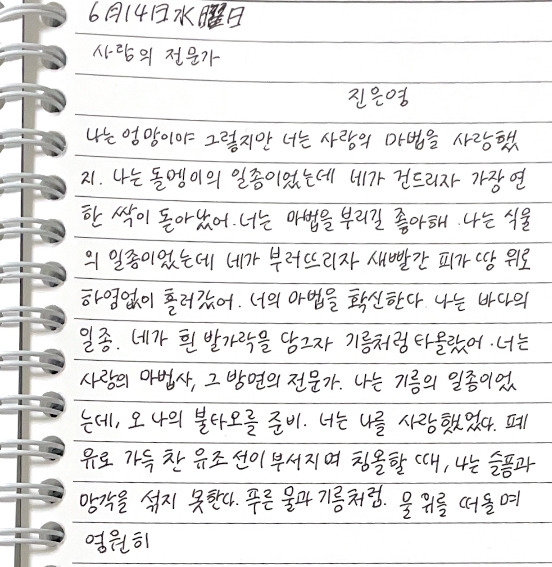 6月14日水曜日
사랑의 전문가
진은영
나는 엉망이야 그렇지만 너는 사랑의 마법을 사랑했
지. 나는 돌멩이의 일종이었는데 네가 건드리자 가장 연
한 싹이 돋아났어. 너는 마법을 부리길 좋아해. 나는 식물
의 일종이었는데 네가 부러뜨리자 새빨간 피가 땅 위로
하염없이 흘러갔어. 너의 마법을 확신한다. 나는 바다의
일종. 네가 흰 발가락을 담그자 기름처럼 타올랐어. 너는
사랑의 마법사, 그 방면의 전문가. 나는 기름의 일종이었
는데, 오 나의 불타오를 준비. 너는 나를 사랑했었다. 폐
유로 가득 찬 유조선이 부서지며 침몰할 때, 나는 슬픔과
망각을 섞지 못한다. 푸른 물과 기름처럼. 물 위를 떠돌며
영원히